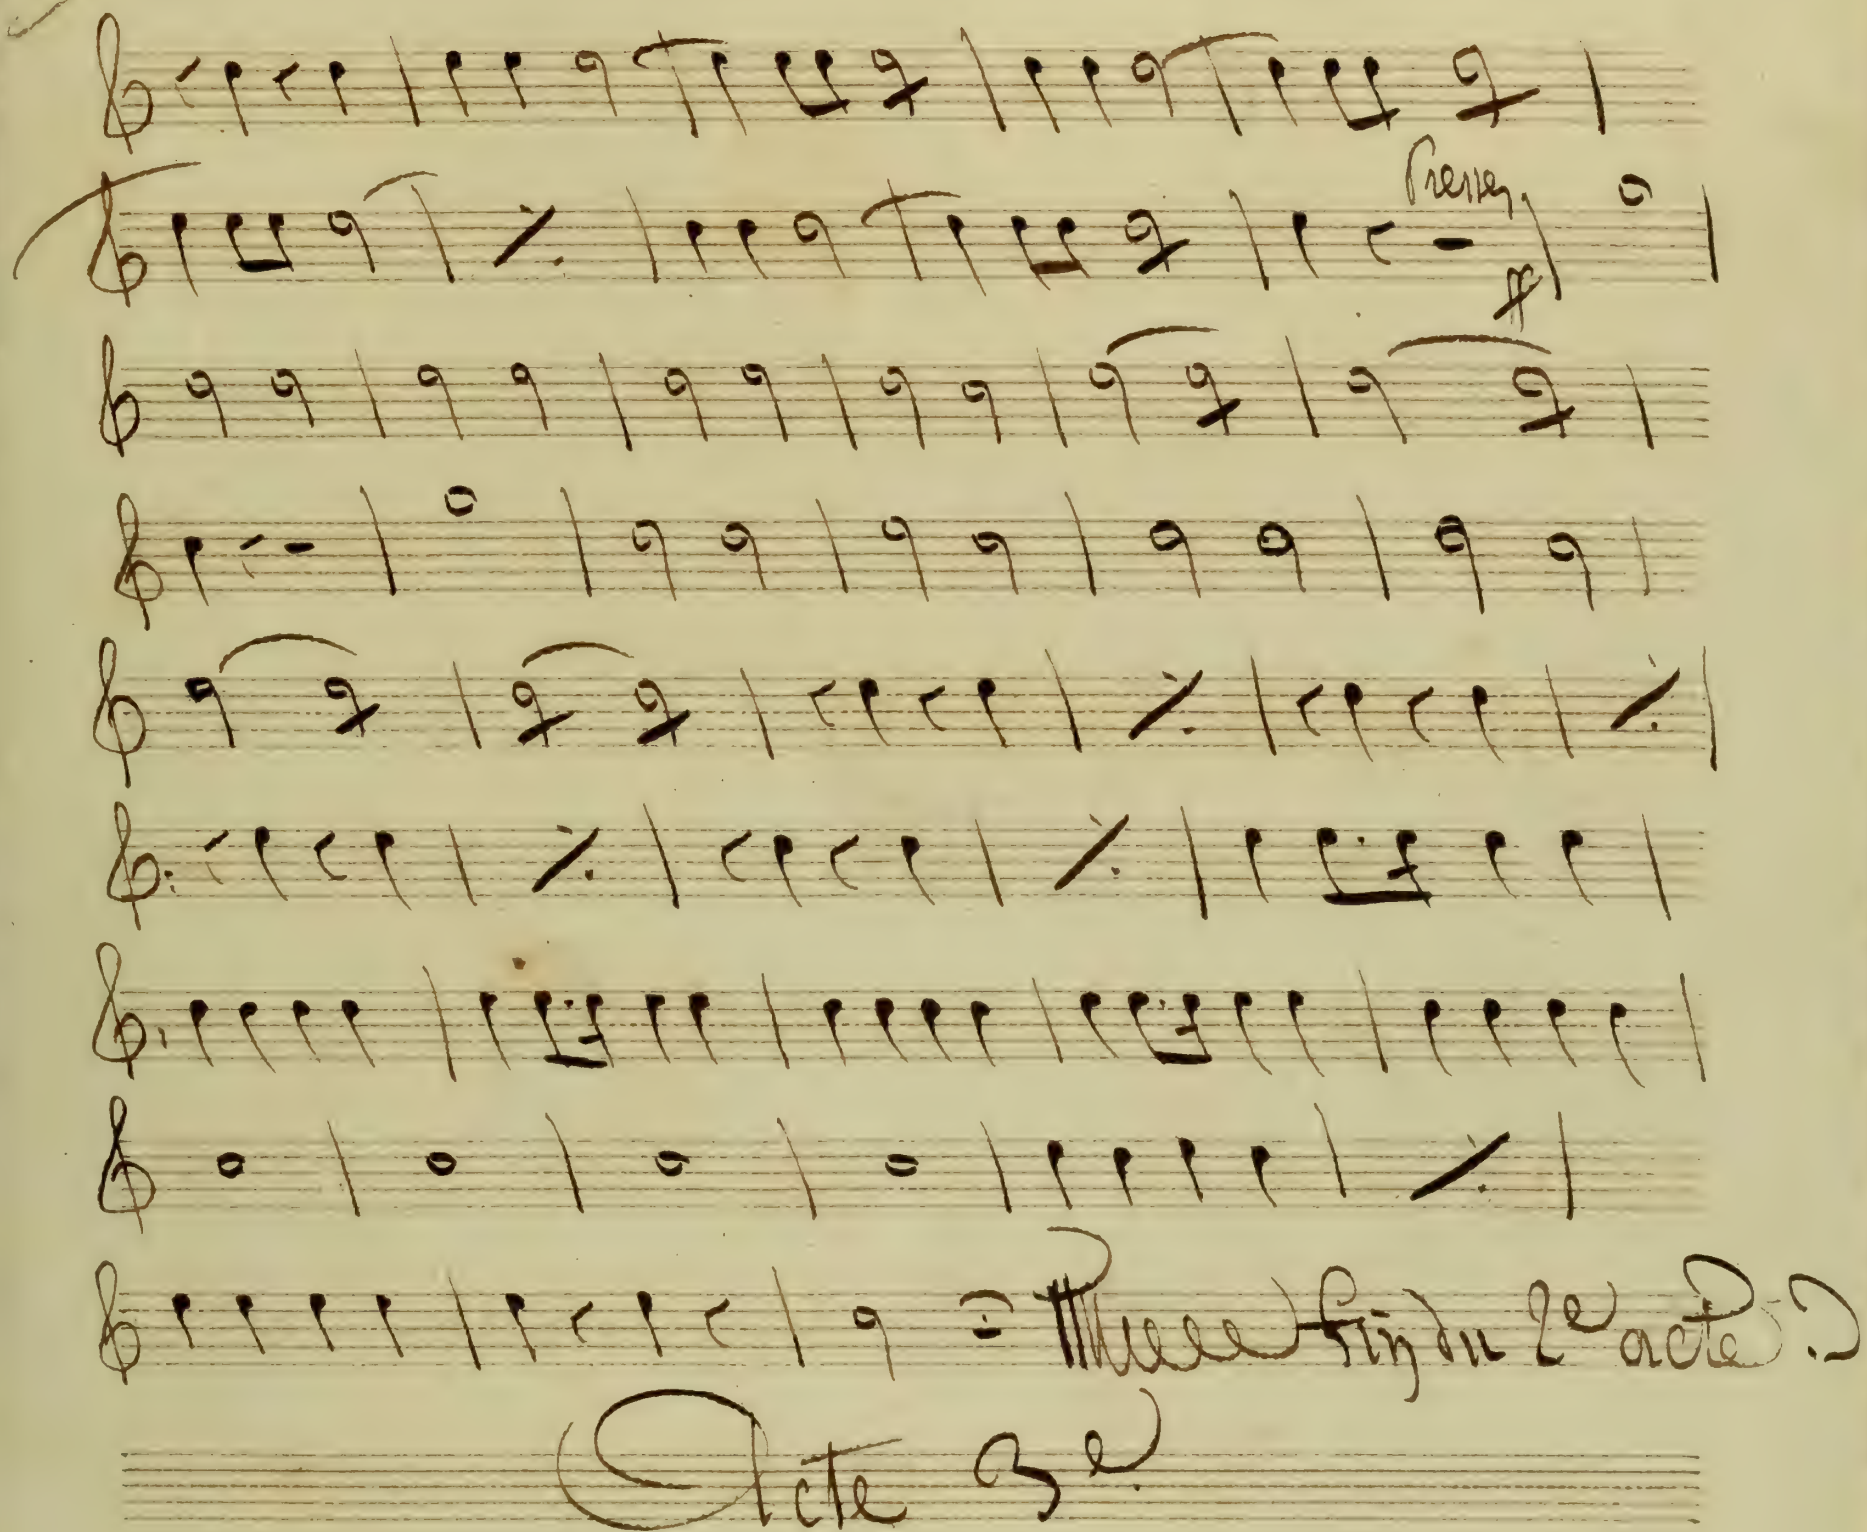 Pressez
ff
fin du 2e acte.
Acte 3e